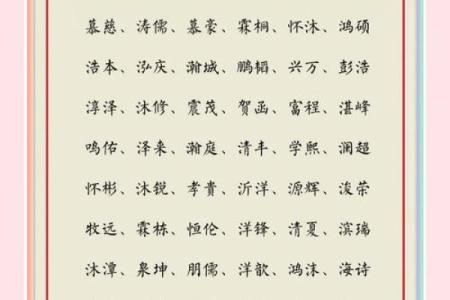 慕慈、涛儒、慕豪、霖桐、怀沐、鸿硕
浩本、泓庆、瀚城、鹏韬、兴万、彭浩
淳泽、沐修、震茂、贺函、富程、湛峰
鸣佑、泽来、瀚庭、清丰、学熙、澜超
怀彬、沐锐、孝貴、沂洋、源辉、浚荣
牧远、霖栋、恒伦、洋锋、清夏、滨瑞
沐潭、泉坤、朋儒、洋歆、鸿沫、海诗